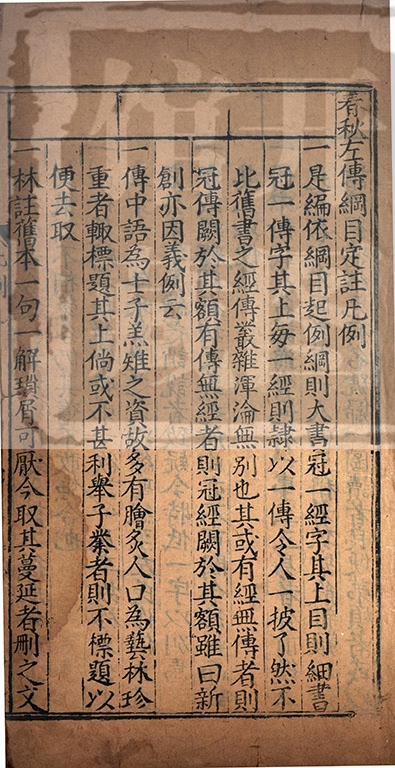 春秋左傳綱目定註凡例
一是編依綱目起例綱則大書冠一經字其上目則細書
冠一傳字其上每一經則隸以一傳令人一披了然不
比舊書之經傳叢雜渾淪無別也其或有經無傳者則
冠傳闕於其額有傳無經者則冠經闕於其額雖曰新
創亦因義例云
一傳中語為士子羔雉之資故多有膾炙人口為藝林珍
重者輙標題其上倘或不甚利舉子業者則不標題以
便去取
一林註舊本一句一解瑣屑可厭今取其蔓延者刪之文